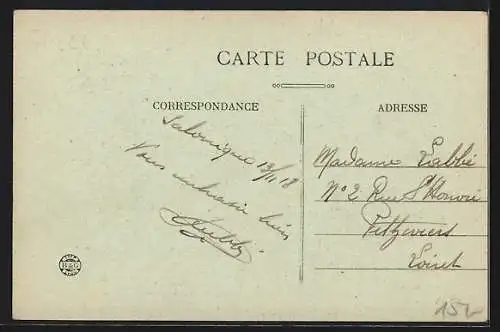 CARTE POSTALE
CORRESPONDANCE
ADRESSE
Salonique 19/11 18
Vous embrasse bien
Madame Labbé
N° 2 Rue St Honoré
Pithiviers
Loiret
B&G
15